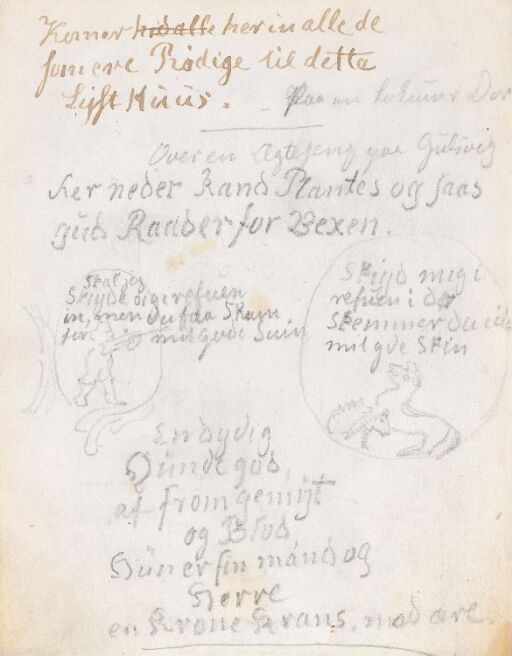 Komer hid alle her in alle de
som ere Rødige til detta
Lyst Huus.
Paa en Dør
Over en Ægteseng paa Gulsvig
Her neder kand Plantes og saas
gud Raader for Vexen.
Skal jeg
Skiyde dig i refuen
in, men du faa Skam
for mit gode Suin
Skiyd mig i
refuen i dør
Skemmer du ick
mit gode Skin
En dydig
Qvinde god,
af from gemyt
og Blod,
Hun er sin mand og
Herre
en Krone Krans, med ære.